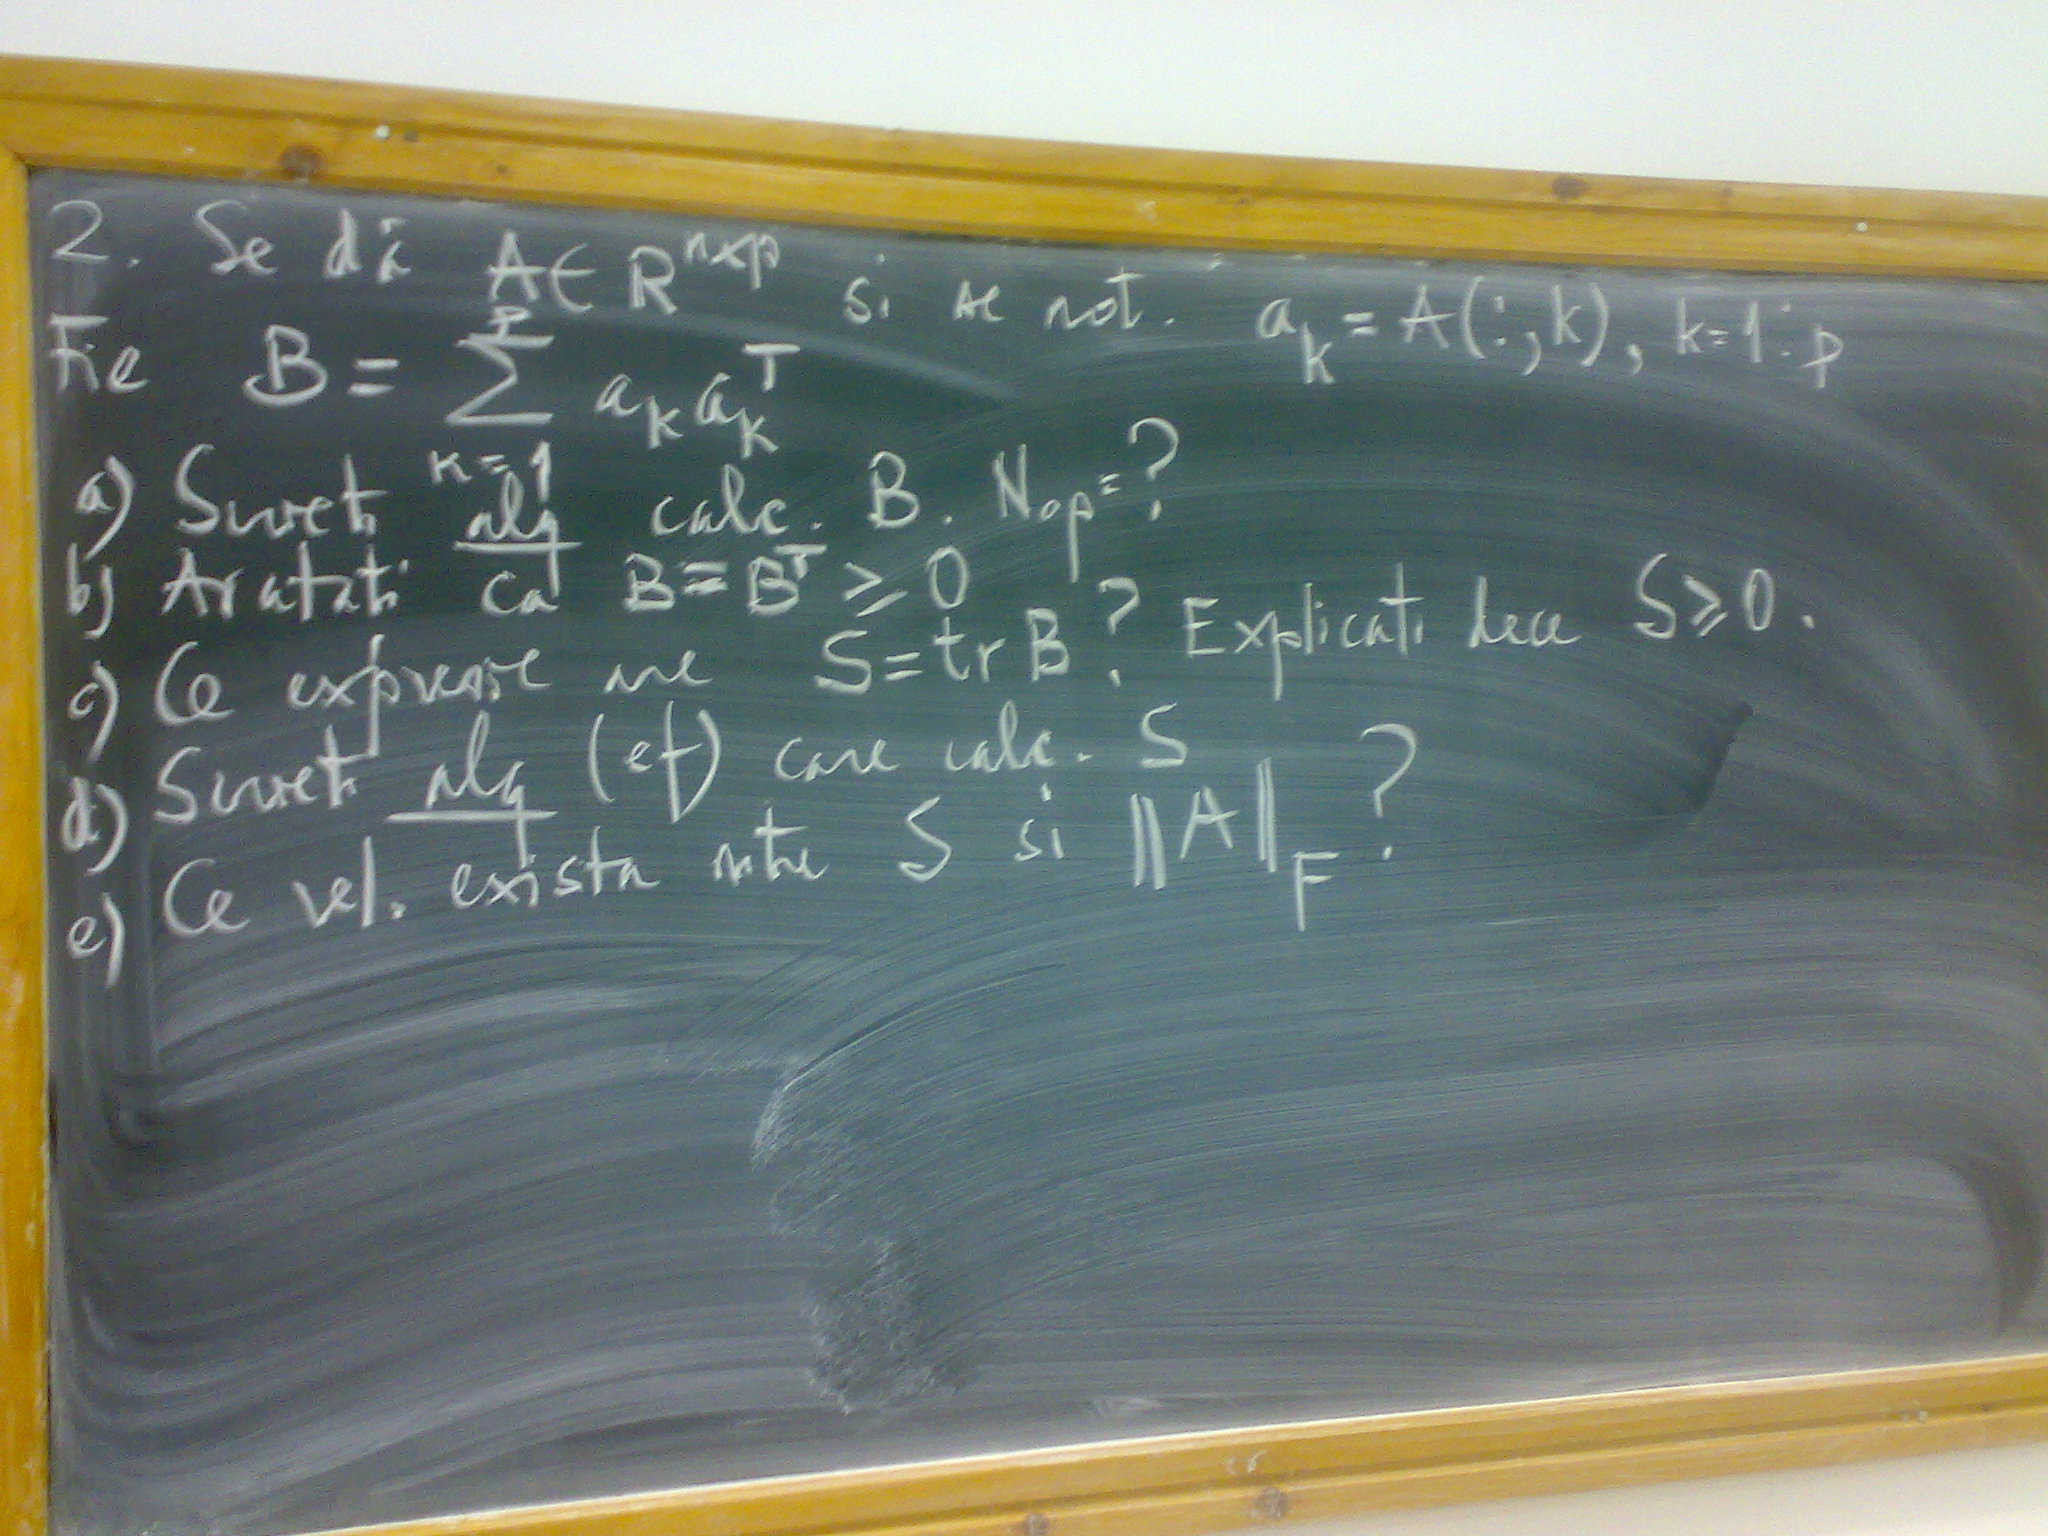 2. Se dă A∈R^{nxp} si se not. a_k = A(:,k), k=1:p
Fie B = \sum_{k=1}^{p} a_k a_k^T
a) Scrieti alg calc. B. N_{op}=?
b) Aratati ca B=B^T ≥ 0
c) Ce expresie are S=tr B? Explicati dece S≥0.
d) Scrieti alg (ef) care calc. S
e) Ce rel. exista intre S si ||A||_F ?